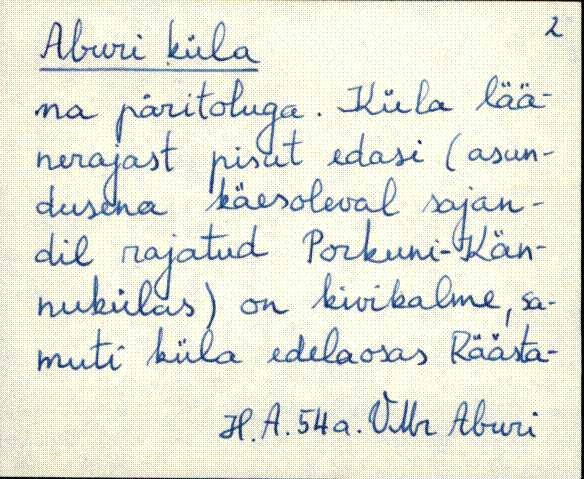 2
Aburi küla
na päritoluga. Küla lää-
nerajast pisut edasi (asun-
dusena käesoleval sajan-
dil rajatud Porkuni-Kän-
nukülas) on kivikalme, sa-
muti küla edelaosas Räästa-
H.A. 54a. VMr Aburi